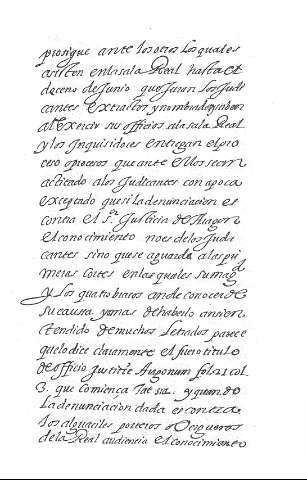 prosigue ante los otros los quales
asisten en la sala Real hasta el
de Junio que Juran los Judi
cantes extractos y nombrados y suben
al Exercir sus officios a la sala Real
y los Inquisidores entregan el pro
ceso o procesos que ante ellos se an
actitado a los Judicantes con a poca
exceptado que si la denunciacion es
contra el S.or Justicia de Aragon
el conocimiento no es de los Judi
cantes sino que se aguarda a las pri
meras Cortes en las quales su mag.d
y Los quatro braços an de conocer de
su causa y a mas de haberlo ansi en
tendido de muchos Letrados parece
que lo dice claramente el fuero titulo
de officio Justitie Aragonum fol. 21 col.
3. que comiença y quando
La denunciacion dada es contra
los alguaciles porteros o
de la Real audiencia el conocimiento